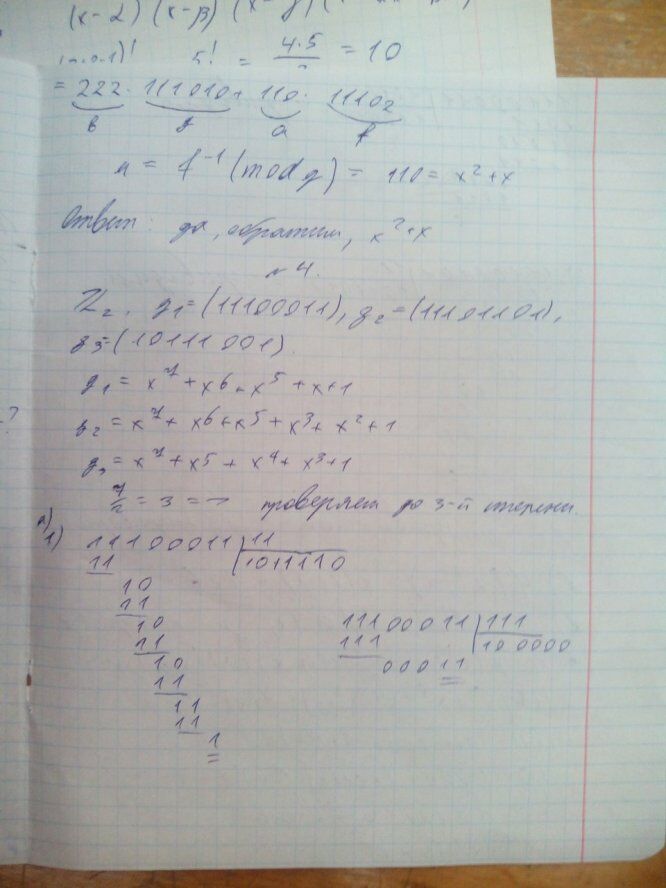 (x-α) (x-β) (x-γ)
5! = 4·5 = 10
= 222 · 111010 + 110 · 11102
в g a f
u = f⁻¹ (mod g) = 110 = x² + x
Ответ: да, обратим, x² + x
№ 4.
ℤ₂, g₁ = (11100011), g₂ = (11101101),
g₃ = (10111001).
g₁ = x⁷ + x⁶ + x⁵ + x + 1
g₂ = x⁷ + x⁶ + x⁵ + x³ + x² + 1
g₃ = x⁷ + x⁵ + x⁴ + x³ + 1
7/2 = 3 => проверяем до 3-й степени.
а)
1) 11100011 | 11
11 1011110
10
11
10
11
10
11
11
11
1
11100011 | 111
111 100000
00011